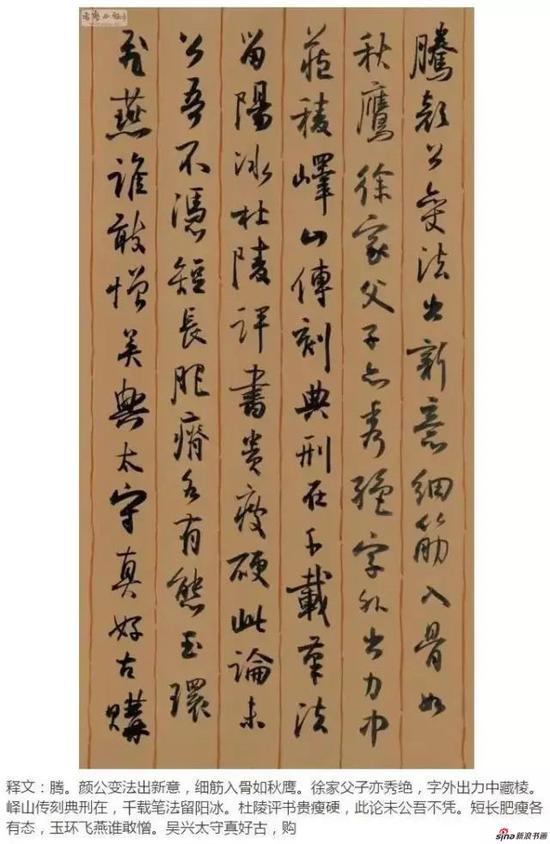 騰顏公變法出新意細筋入骨如
秋鷹徐家父子亦秀絕字外出力中
藏稜嶧山傳刻典刑在千載筆法
留陽冰杜陵評書貴瘦硬此論未
公吾不憑短長肥瘠各有態玉環
飛燕誰敢憎吳興太守真好古購
释文：腾。颜公变法出新意，细筋入骨如秋鹰。徐家父子亦秀绝，字外出力中藏棱。
峄山传刻典刑在，千载笔法留阳冰。杜陵评书贵瘦硬，此论未公吾不凭。短长肥瘦各
有态，玉环飞燕谁敢憎。吴兴太守真好古，购
sina新浪书画